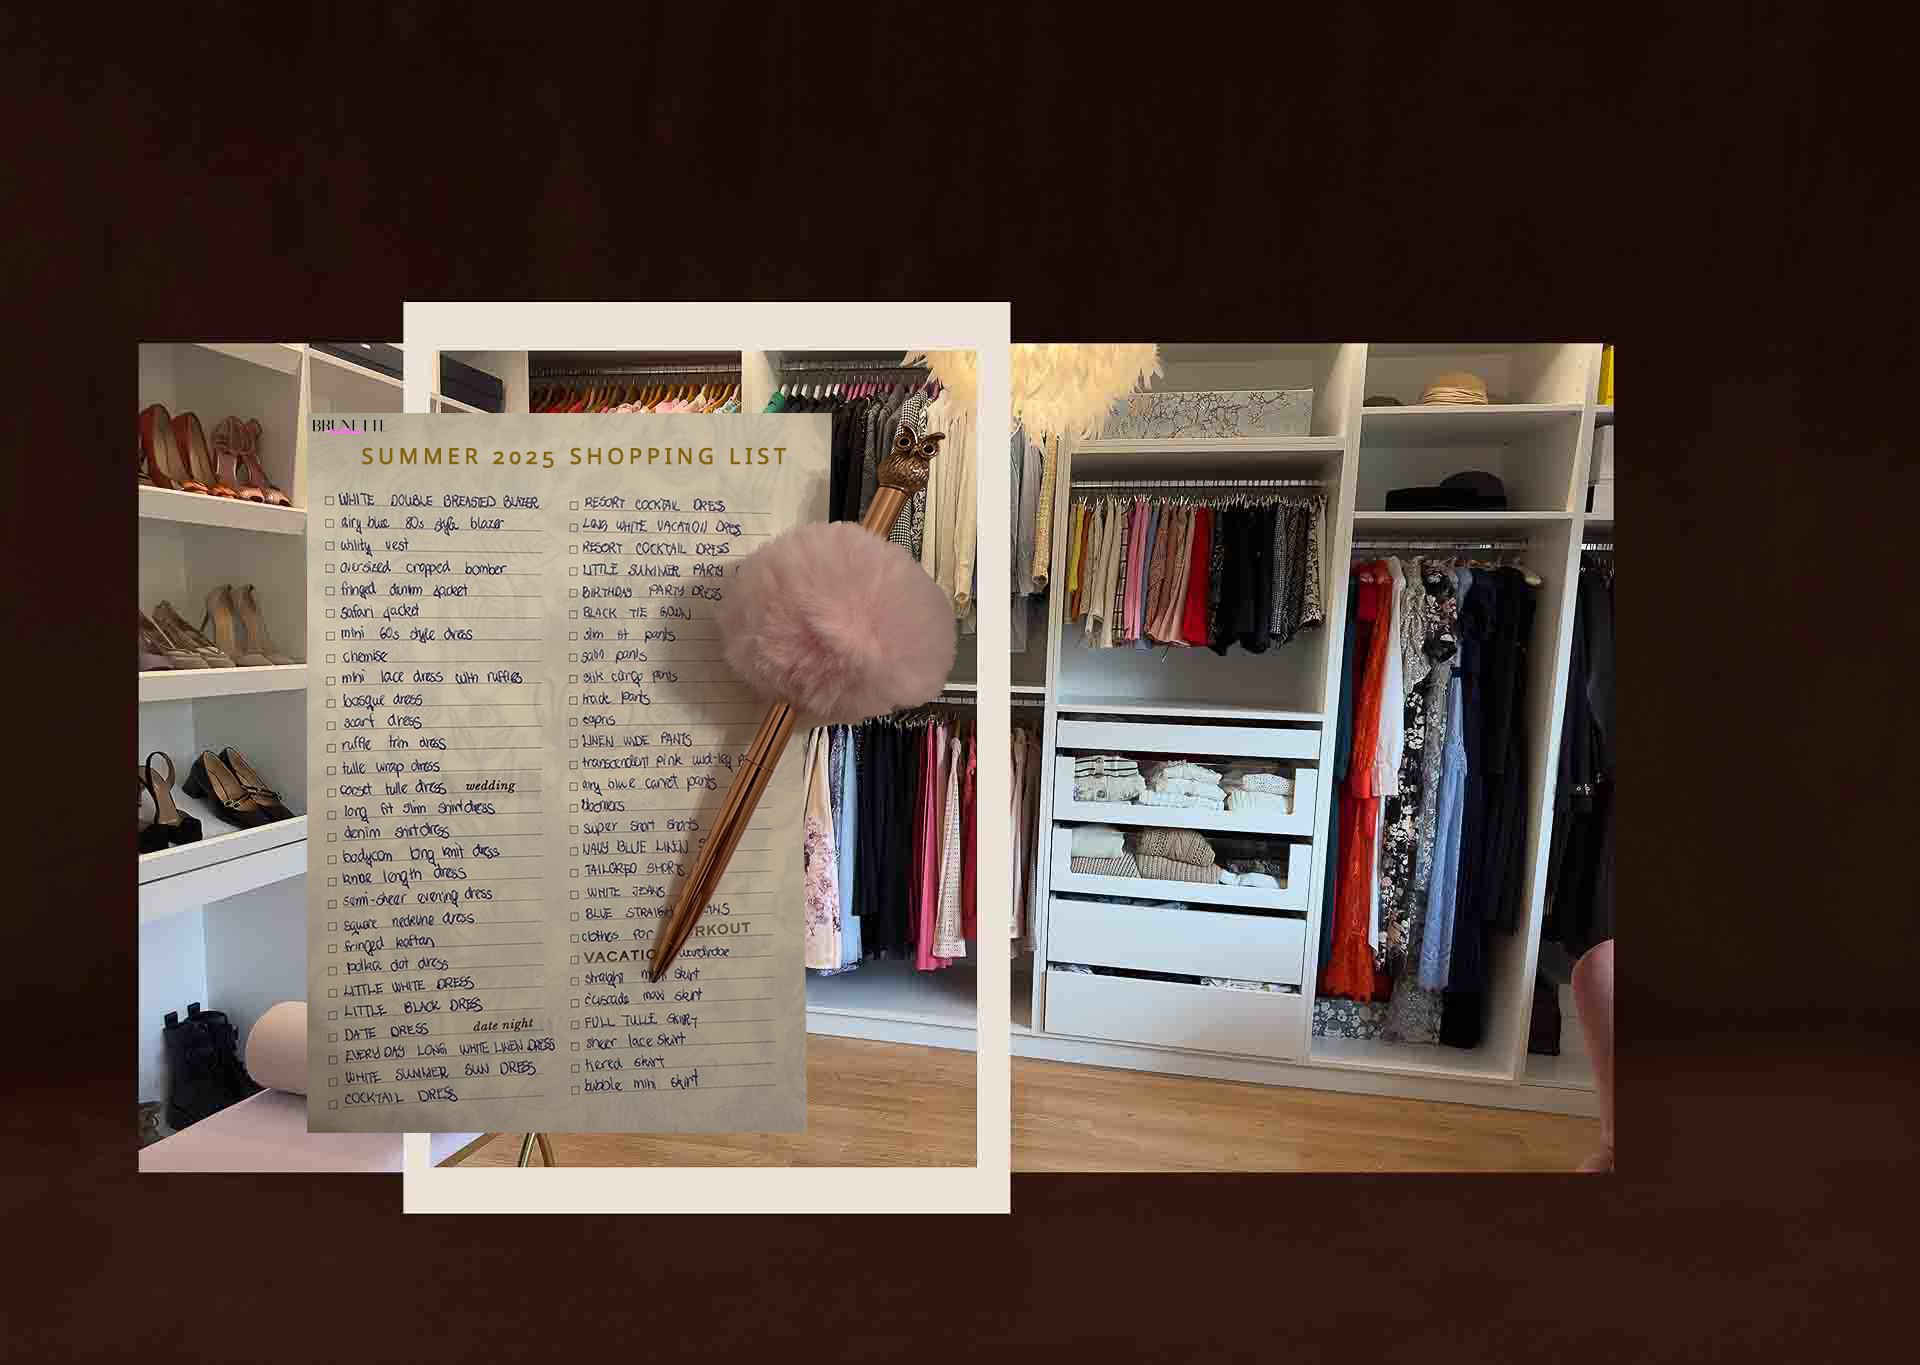 BRUNETTE
SUMMER 2025 SHOPPING LIST
WHITE DOUBLE BREASTED BLAZER
airy blue 80s style blazer
utility vest
oversized cropped bomber
fringed denim jacket
safari jacket
mini 60s style dress
chemise
mini lace dress with ruffles
basque dress
scarf dress
ruffle trim dress
tulle wrap dress
corset tulle dress wedding
long fit slim shirtdress
denim shirtdress
bodycon long knit dress
knee length dress
semi-sheer evening dress
square neckline dress
fringed kaftan
polka dot dress
LITTLE WHITE DRESS
LITTLE BLACK DRESS
DATE DRESS date night
EVERYDAY LONG WHITE LINEN DRESS
WHITE SUMMER SUN DRESS
COCKTAIL DRESS
RESORT COCKTAIL DRESS
LONG WHITE VACATION DRESS
RESORT COCKTAIL DRESS
LITTLE SUMMER PARTY
BIRTHDAY PARTY DRESS
BLACK TIE GOWN
slim fit pants
satin pants
silk cargo pants
track pants
capris
LINEN WIDE PANTS
transcendent pink wid-leg
airy blue carrot pants
bloomers
super short shorts
NAVY BLUE LINEN
TAILORED SHORTS
WHITE JEANS
BLUE STRAIGHT
clothes for
wardrobe
straight skirt
cascade maxi skirt
FULL TULLE SKIRT
sheer lace skirt
tiered skirt
bubble mini skirt